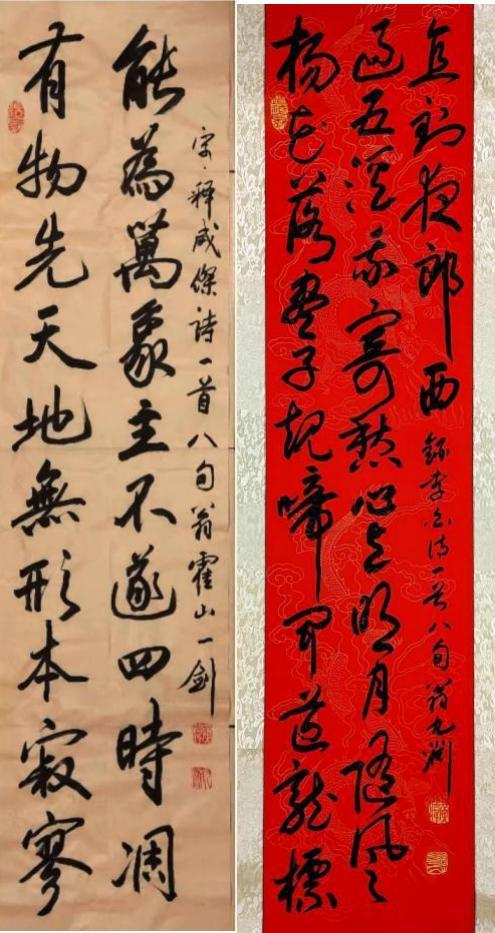 有物先天地無形本寂寥
能為萬象主不遂四時凋
宋·釋咸傑詩一首八旬翁霍山一劍
楊花落盡子規啼聞道龍標
過五溪我寄愁心與明月隨風
直到夜郎西
錄李白詩一首八旬翁